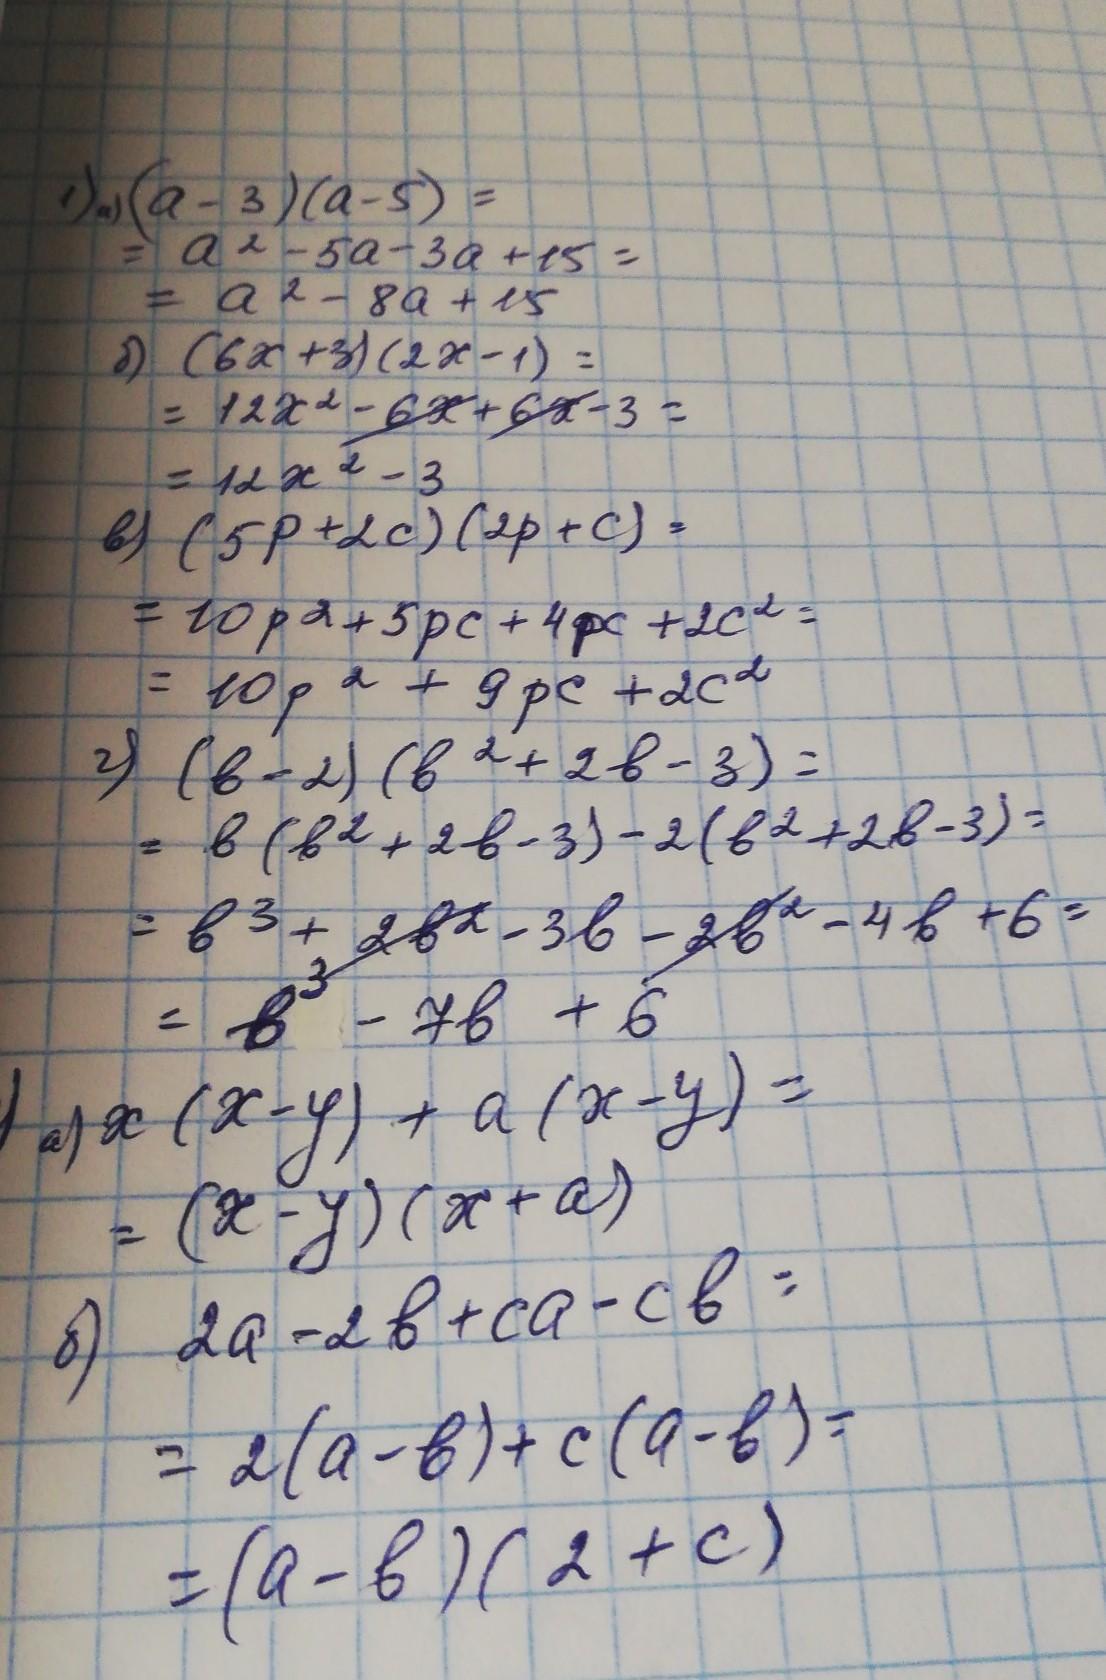 1) а) (a - 3)(a - 5) =
= a² - 5a - 3a + 15 =
= a² - 8a + 15
б) (6x + 3)(2x - 1) =
= 12x² - 6x + 6x - 3 =
= 12x² - 3
в) (5p + 2c)(2p + c) =
= 10p² + 5pc + 4pc + 2c² =
= 10p² + 9pc + 2c²
г) (b - 2)(b² + 2b - 3) =
= b(b² + 2b - 3) - 2(b² + 2b - 3) =
= b³ + 2b² - 3b - 2b² - 4b + 6 =
= b³ - 7b + 6
) а) x(x - y) + a(x - y) =
= (x - y)(x + a)
б) 2a - 2b + ca - cb =
= 2(a - b) + c(a - b) =
= (a - b)(2 + c)